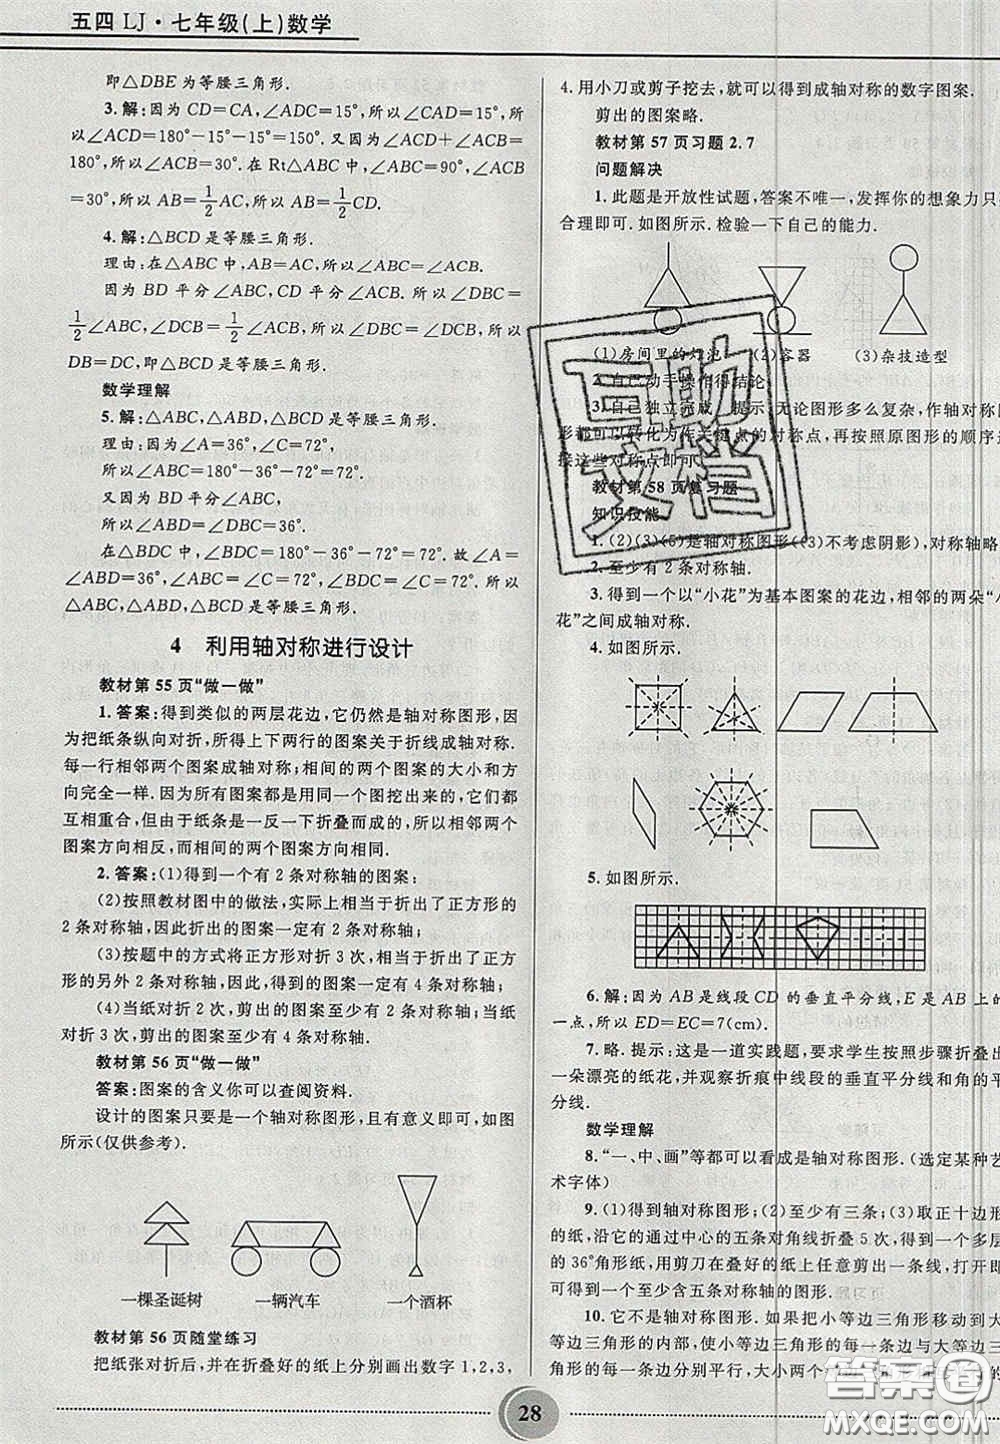 五四 LJ·七年级(上)数学
即△DBE为等腰三角形.
3.解:因为CD=CA,∠ADC=15°,所以∠CAD=15°,所
以∠ACD=180°-15°-15°=150°. 又因为∠ACD+∠ACB=
180°,所以∠ACB=30°. 在 Rt△ABC 中,∠ABC=90°,∠ACB=
30°,所以 AB=1/2AC,所以 AB=1/2CD.
4.解:△BCD 是等腰三角形.
理由:在△ABC 中,AB=AC,所以∠ABC=∠ACB.
因为 BD 平分∠ABC,CD 平分∠ACB,所以∠DBC=
1/2∠ABC,∠DCB=1/2∠ACB,所以∠DBC=∠DCB,所以
DB=DC,即△BCD 为等腰三角形.
数学理解
5.解:△ABC,△ABD,△BCD 是等腰三角形.
理由:因为∠A=36°,∠C=72°,所以∠ABC=72°.
又因为 BD 平分∠ABC,
所以∠ABD=∠DBC=36°.
在△BDC 中,∠BDC=180°-36°-72°=72°. 故∠A=
∠ABD=36°,∠ABC=∠C=72°,∠BDC=∠C=72°. 所以
△ABC,△ABD,△BCD 是等腰三角形.
4 利用轴对称进行设计
教材第 55 页“做一做”
1.答案:得到类似的两层花边,它仍然是轴对称图形,因
为把纸条纵向对折,所得上下两行的图案关于折线成轴对称.
每一行相邻两个图案成轴对称;相间的两个图案的大小和方
向完全一样. 因为所有图案都是用同一个图挖出来的,它们都
互相重合,但由于纸条是一反一下折叠而成的,所以相邻两个
图案方向相反,而相间的两个图案方向相同.
2.答案:(1)得到一个有 2 条对称轴的图案;
(2)按照教材图中的做法,实际上相当于折出了正方形的
2 条对称轴,因此折出的图案一定有 2 条对称轴;
(3)按题中的方式将正方形对折 3 次,相当于折出了正方
形的另外 2 条对称轴,因此得到的图案一定有 4 条对称轴;
(4)当纸对折 2 次,剪出的图案至少有 2 条对称轴;当纸
对折 3 次,剪出的图案至少有 4 条对称轴.
教材第 56 页“做一做”
答案:图案的含义你可以查阅资料.
设计的图案只要是一个轴对称图形,且有意义即可. 如图
所示(仅供参考).
一棵圣诞树 一辆汽车 一个酒杯
教材第 56 页随堂练习
把纸张对折后,并在折叠好的纸上分别画出数字 1,2,3,
4. 用小刀或剪子挖去,就可以得到成轴对称的数字图案.
剪出的图案略.
教材第 57 页习题 2.7
问题解决
1.此题是开放性试题,答案不唯一,发挥你的想象力只
合理即可. 如图所示. 检验一下自己的能力.
(1)房间里的灯泡 (2)容器 (3)杂技造型
2.自己动手操作得结论.
3.自己独立完成. 提示:无论图形多么复杂,作轴对称图
形都可以转化为作关键点的对称点,再按照原图形的顺序连
接这些对称点即可.
教材第 58 页复习题
知识技能
1.(2)(3)(5)是轴对称图形((3)不考虑阴影),对称轴略
2.至少有 2 条对称轴.
3.得到一个以“小花”为基本图案的花边,相邻的两朵“小
花”之间成轴对称.
4.如图所示.
5.如图所示.
6.解:因为 AB 是线段 CD 的垂直平分线,E 是 AB 上的
一点,所以 ED=EC=7(cm).
7.略. 提示:这是一道实践题,要求学生按照步骤折叠出
一朵漂亮的纸花,并观察折痕中线段的垂直平分线和角的平
分线.
数学理解
8.“一、中、画”等都可以看成是轴对称图形.(选定某种艺
术字体)
9.(1)得到轴对称图形;(2)至少有三条;(3)取正十边形
的纸,沿它的通过中心的五条对角线折叠 5 次,得到一个多层
的 36°角形纸,用剪刀在叠好的纸上任意剪出一条线,打开即
得到一个至少含五条对称轴的图形.
10.它不是轴对称图形. 如果把小等边三角形移动到大
等边三角形的内部,使小等边三角形的每一条边与大等边三
角形的每一条边分别平行,大小两个
互助
文档
答案圈
MXQE.COM
28